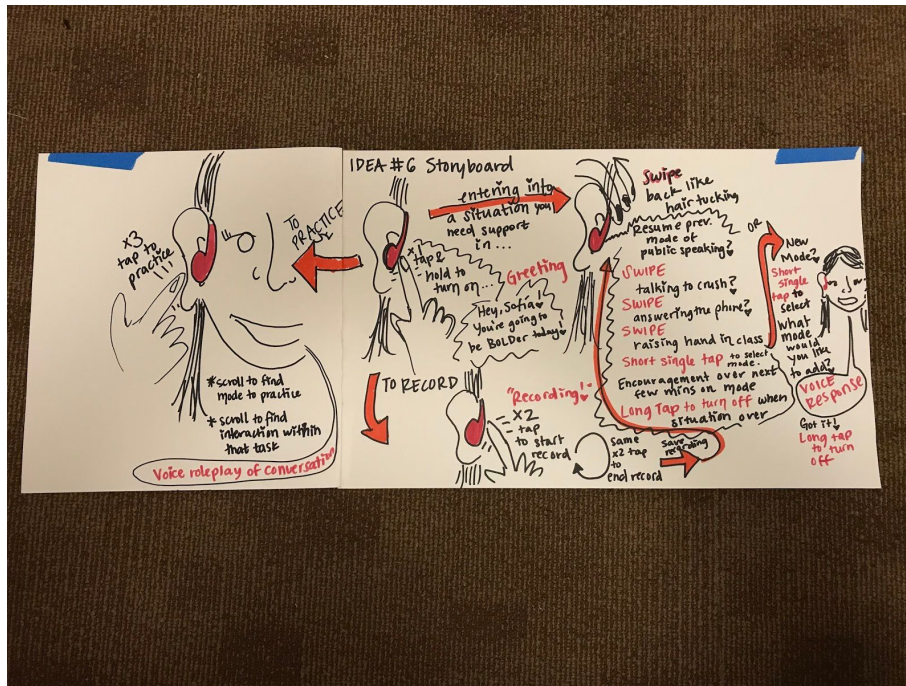 IDEA #6 Storyboard
x3
tap to
practice
!!!
TO
PRACTICE
*scroll to find
mode to practice
*scroll to find
interaction within
that task
Voice roleplay of conversation
*1
tap &
hold to
turn on...
Greeting
Hey, Sofia!
You're going to
be BOLDer today
TO RECORD
"Recording!"
x2
tap
to start
record
same
x2 tap
to
end record
save
recording
entering into
a situation you
need support
in...
Swipe
back like
hair tucking
Resume prev.
mode of
public speaking?
SWIPE
talking to crush?
SWIPE
answering the phone?
SWIPE
raising hand in class
Short single tap to select
mode.
Encouragement over next
few mins on mode
Long Tap to turn off when
situation over
OR
New
Mode?
Short
single
tap to
select
What
mode
would
you like
to add?
VOICE
RESPONSE
Got it!
Long tap
to turn
off